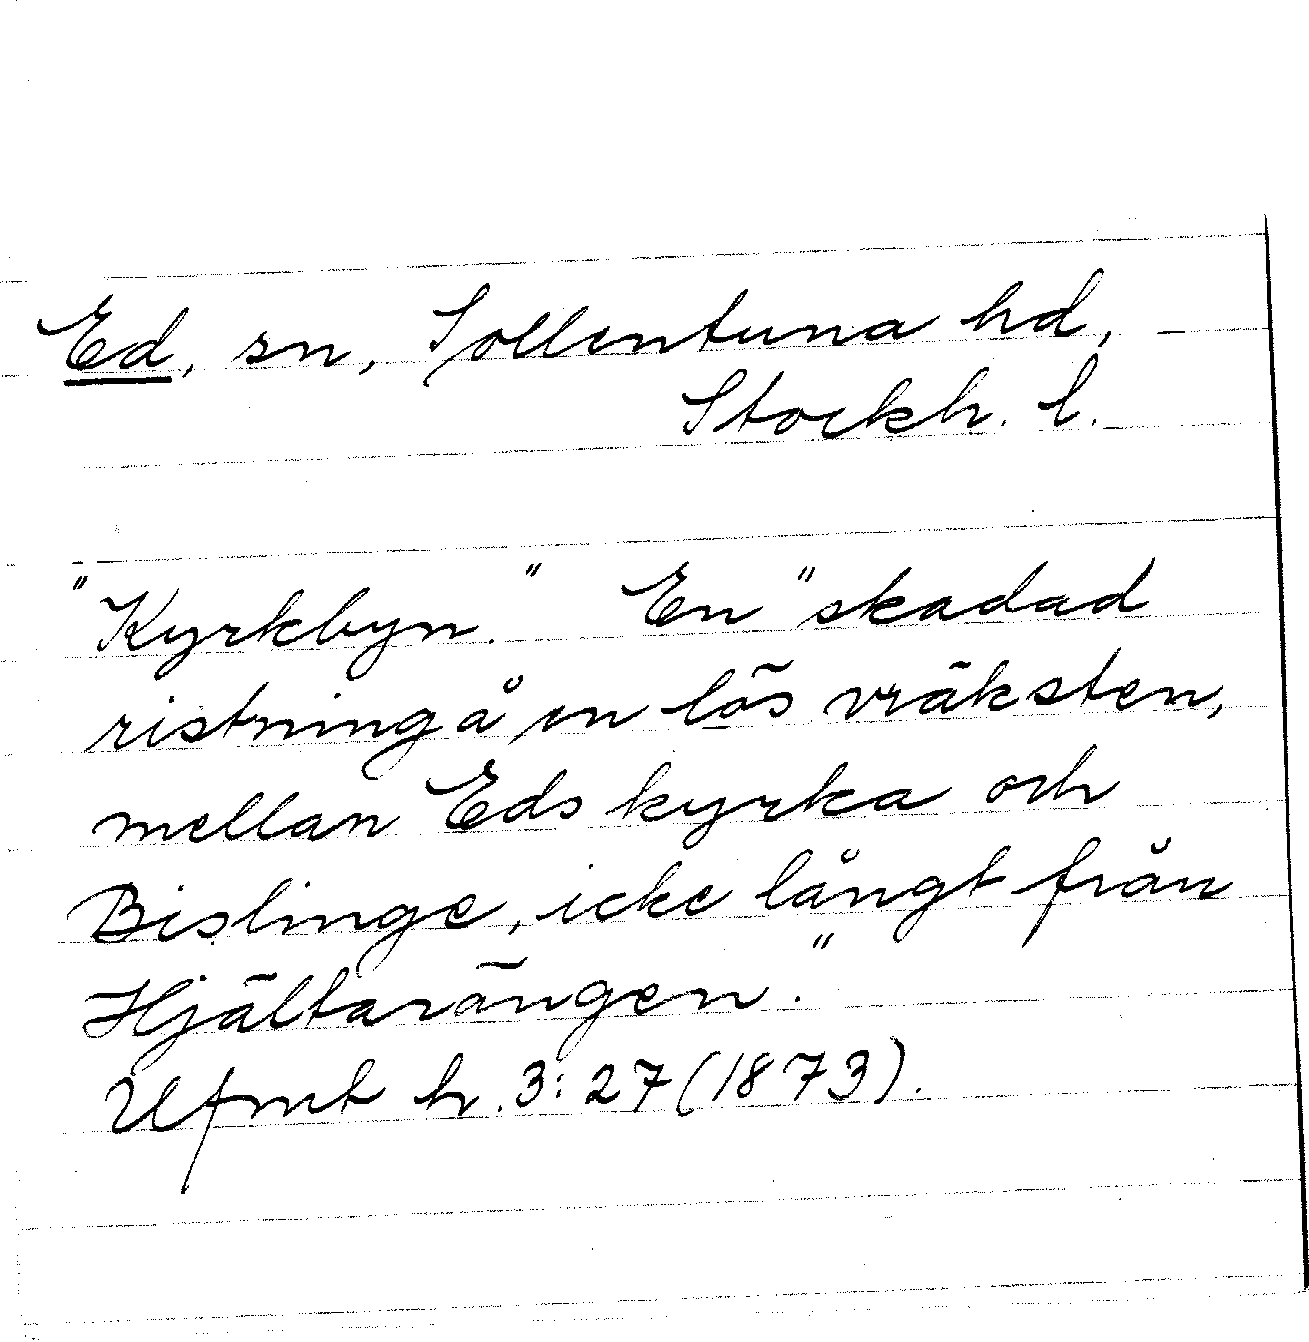 Ed, sn, Sollentuna hd,
Stockh. l.
"Kyrkbyn." En "skadad
ristning å en lös vräksten,
mellan Eds kyrka och
Bislinge, icke långt från
Hjältarängen."
Ufmt h. 3:27 (1873).